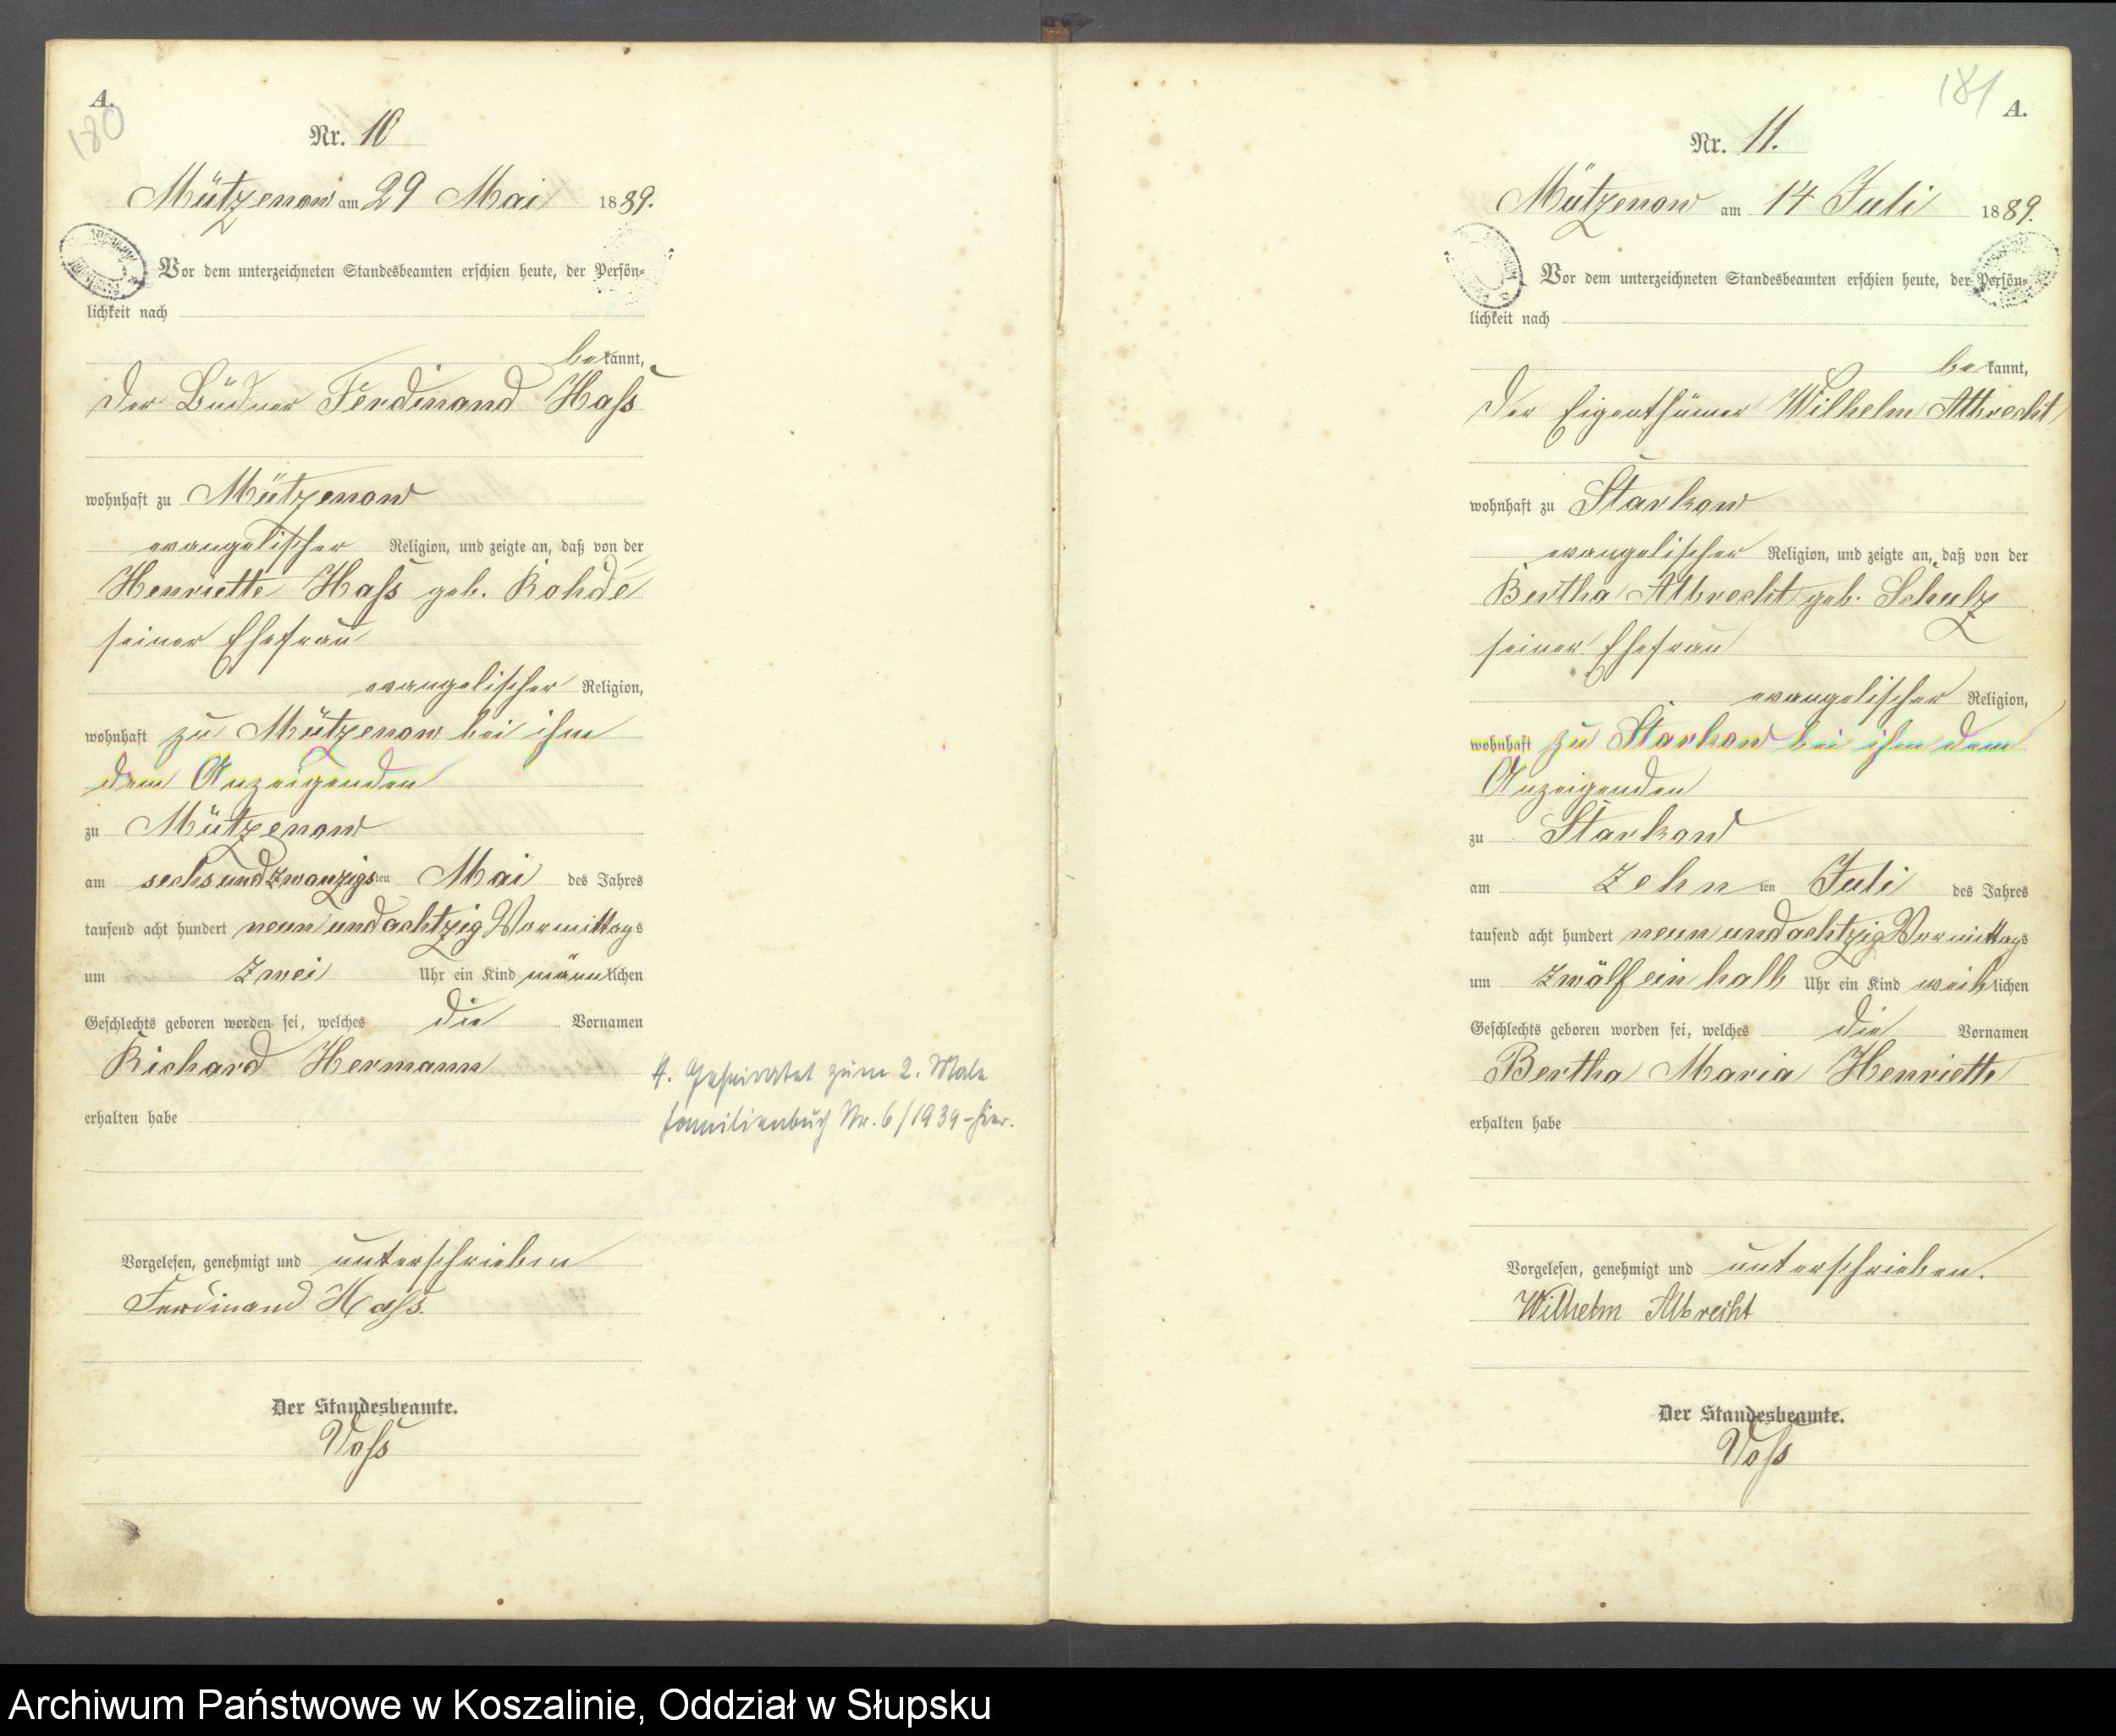 A.
180
Nr. 10
Mützenow am 29 Mai 1889.
Vor dem unterzeichneten Standesbeamten erschien heute, der Persön-
lichkeit nach
bekannt,
der Büdner Ferdinand Hass
wohnhaft zu Mützenow
evangelischer Religion, und zeigte an, daß von der
Henriette Hass geb. Rohde
seiner Ehefrau
evangelischer Religion,
wohnhaft zu Mützenow bei ihm
dem Anzeigenden
zu Mützenow
am sechsundzwanzigsten Mai des Jahres
tausend acht hundert neun und achtzig Vormittags
um zwei Uhr ein Kind männlichen
Geschlechts geboren worden sei, welches die Vornamen
Richard Hermann
erhalten habe
Vorgelesen, genehmigt und unterschrieben
Ferdinand Hass.
Der Standesbeamte.
Voss
A. Geheiratet zum 2. Male
Familienbuch Nr. 6/1939 - hier.
181
A.
Nr. 11.
Mützenow am 14 Juli 1889.
Vor dem unterzeichneten Standesbeamten erschien heute, der Persön-
lichkeit nach
bekannt,
der Eigenthümer Wilhelm Albrecht
wohnhaft zu Starkow
evangelischer Religion, und zeigte an, daß von der
Bertha Albrecht geb. Schulz
seiner Ehefrau
evangelischer Religion,
wohnhaft zu Starkow bei ihm dem
Anzeigenden
zu Starkow
am zehnten Juli des Jahres
tausend acht hundert neun und achtzig Vormittags
um zwölf ein halb Uhr ein Kind weiblichen
Geschlechts geboren worden sei, welches die Vornamen
Bertha Maria Henriette
erhalten habe
Vorgelesen, genehmigt und unterschrieben.
Wilhelm Albrecht
Der Standesbeamte.
Voss
Archiwum Państwowe w Koszalinie, Oddział w Słupsku